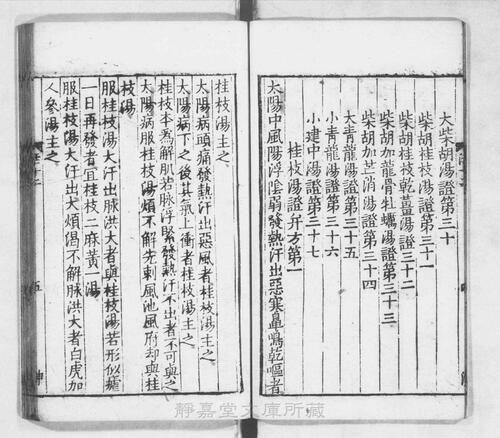 大柴胡湯證第三十
柴胡桂枝湯證第三十一
柴胡桂枝乾薑湯證三十二
柴胡加龍骨牡蠣湯證第三十三
柴胡加芒消湯證第三十四
大青龍湯證第三十五
小青龍湯證第三十六
小建中湯證三十七
桂枝湯證并方第一
太陽中風陽浮陰弱發熱汗出惡寒鼻鳴乾嘔者
桂枝湯主之
太陽病頭痛發熱汗出惡風者桂枝湯主之
太陽病下之後其氣上衝者桂枝湯主之
桂枝本為解肌若脉浮緊發熱汗不出者不可與之
太陽病服桂枝湯煩不解先刺風池風府却與桂
枝湯
服桂枝湯大汗出脉洪大者與桂枝湯若形似瘧
一日再發者宜桂枝二麻黃一湯
服桂枝湯大汗出大煩渴不解脉洪大者白虎加
人參湯主之
五
靜嘉堂文庫所藏